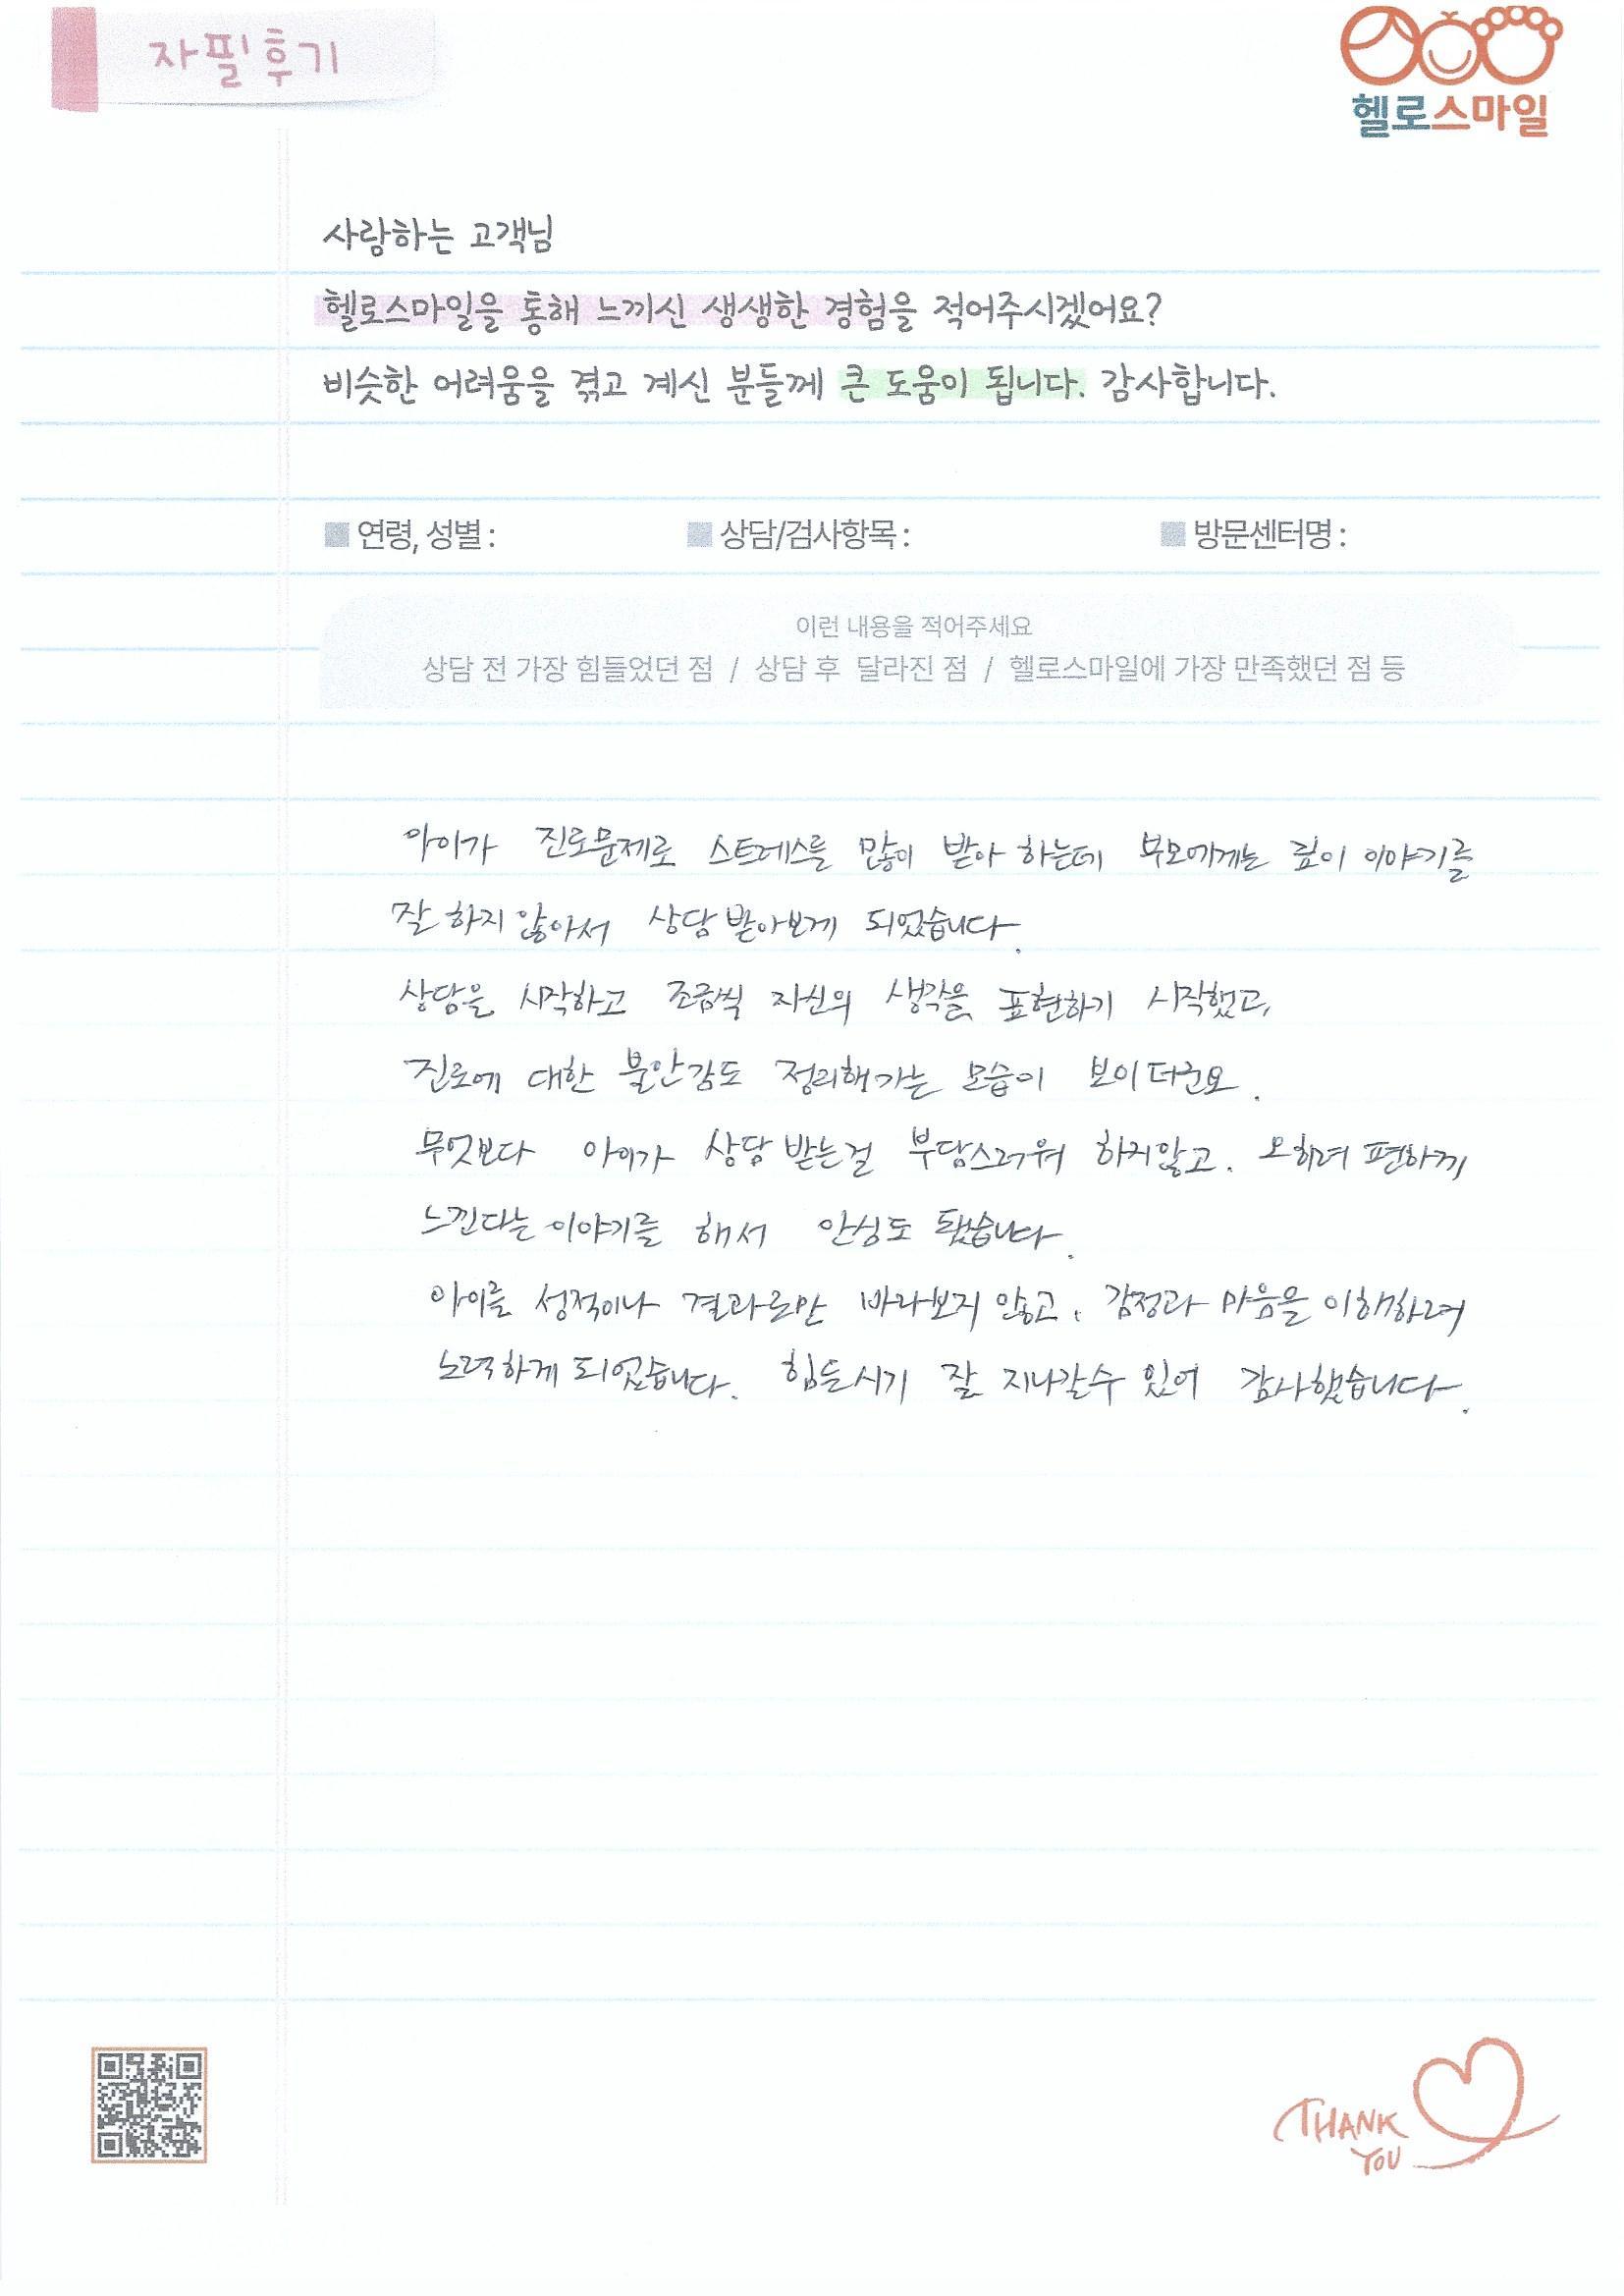 자필후기
헬로스마일
사랑하는 고객님
헬로스마일을 통해 느끼신 생생한 경험을 적어주시겠어요?
비슷한 어려움을 겪고 계신 분들께 큰 도움이 됩니다. 감사합니다.
연령, 성별 : 상담/검사항목 : 방문센터명 :
이런 내용을 적어주세요
상담 전 가장 힘들었던 점 / 상담 후 달라진 점 / 헬로스마일에 가장 만족했던 점 등
아이가 진로문제로 스트레스를 많이 받아 하는데 부모에게는 깊이 이야기를
잘 하지 않아서 상담 받아보게 되었습니다.
상담을 시작하고 조금씩 자신의 생각을 표현하기 시작했고,
진로에 대한 불안감도 정리해가는 모습이 보이더군요.
무엇보다 아이가 상담 받는걸 부담스러워 하지않고, 오히려 편하게
느낀다는 이야기를 해서 안심도 됐습니다.
아이를 성적이나 결과로만 바라보지 않고, 감정과 마음을 이해하려
노력하게 되었습니다. 힘든시기 잘 지나갈수 있어 감사했습니다.
THANK
YOU